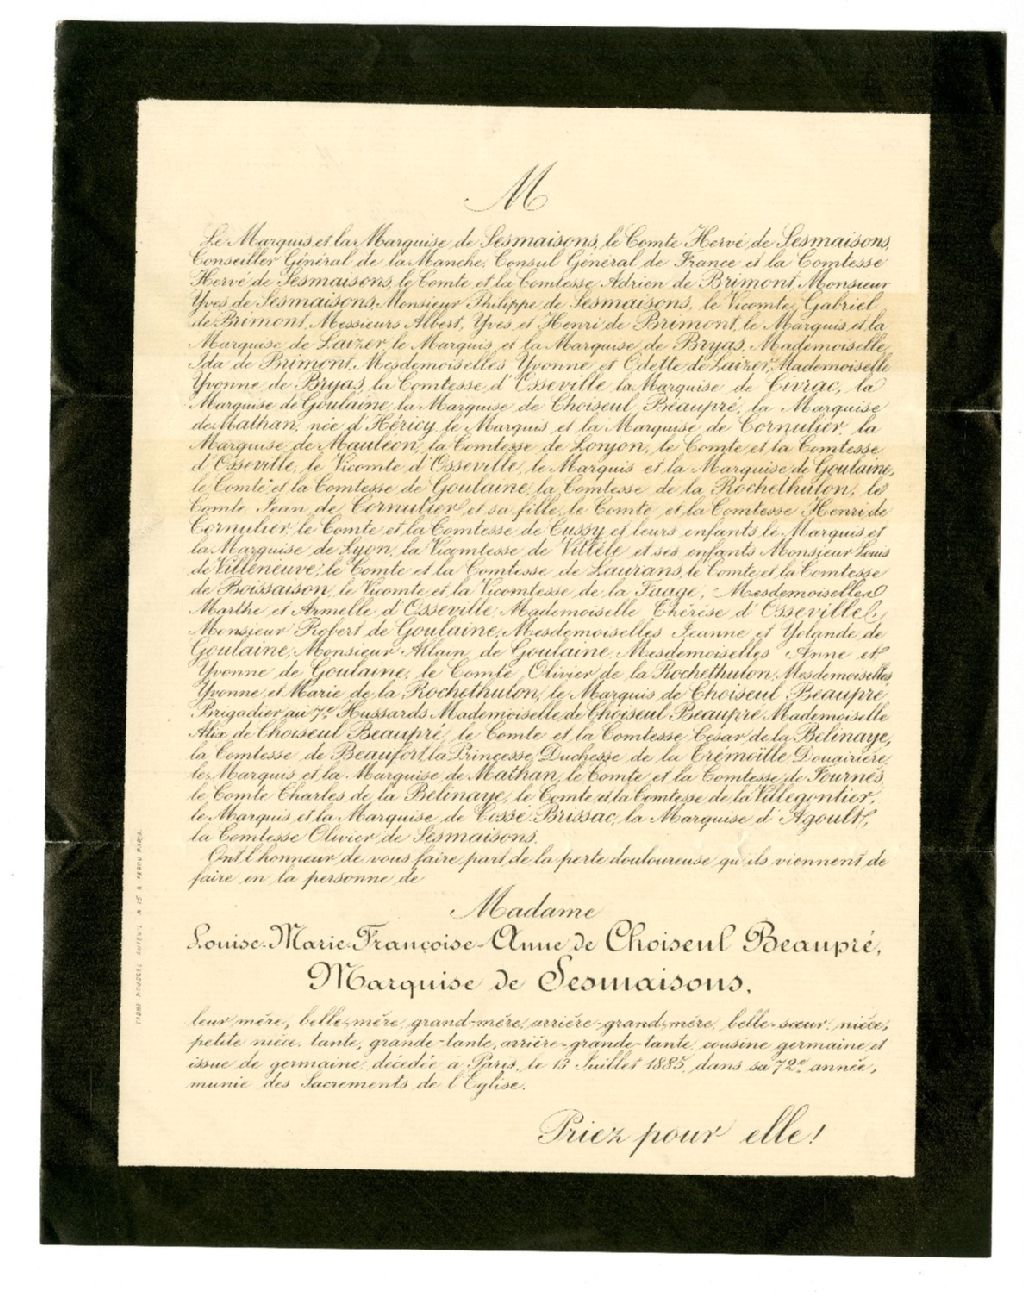 M
Le Marquis et la Marquise de Sesmaisons, le Comte Hervé de Sesmaisons,
Conseiller Général de la Manche, Consul Général de France et la Comtesse
Hervé de Sesmaisons, le Comte et la Comtesse Adrien de Brimont Monsieur
Yves de Sesmaisons, Monsieur Philippe de Sesmaisons, le Vicomte Gabriel
de Brimont, Messieurs Albert, Yves, et Henri de Brimont, le Marquis et la
Marquise de Laizer, le Marquis, et la Marquise de Bryas, Mademoiselle
Ida de Brimont, Mesdemoiselles Yvonne et Odette de Laizer, Mademoiselle
Yvonne de Bryas, la Comtesse d'Osseville, la Marquise de Civrac, la
Marquise de Goulaine, la Marquise de Choiseul Beaupré, la Marquise
de Mathan, née d'Héricy, le Marquis et la Marquise de Cornulier, la
Marquise de Mauléon, la Comtesse de Lonjon, le Comte et la Comtesse
d'Osseville, le Vicomte d'Osseville, le Marquis et la Marquise de Goulaine,
le Comte et la Comtesse de Goulaine, la Comtesse de la Rochethulon, le
Comte Jean de Cornulier et sa fille, le Comte et la Comtesse Henri de
Cornulier, le Comte et la Comtesse de Cussy et leurs enfants, le Marquis et
la Marquise de Lyon, la Vicomtesse de Villèle et ses enfants Monsieur Louis
de Villeneuve, le Comte et la Comtesse de Laurans, le Comte et la Comtesse
de Boissaison, le Vicomte et la Vicomtesse de la Faage, Mesdemoiselles
Marthe et Armelle d'Osseville, Mademoiselle Thérèse d'Osseville,
Monsieur Robert de Goulaine, Mesdemoiselles Jeanne et Yolande de
Goulaine, Monsieur Allain de Goulaine, Mesdemoiselles Anne et
Yvonne de Goulaine, le Comte Olivier de la Rochethulon, Mesdemoiselles
Yvonne et Marie de la Rochethulon, le Marquis de Choiseul Beaupré
Brigadier au 7e Hussards Mademoiselle de Choiseul Beaupré Mademoiselle
Alix de Choiseul Beaupré, le Comte et la Comtesse César de la Bélinaye,
la Comtesse de Beaufort, la Princesse, Duchesse de la Trémoïlle Douairière,
le Marquis et la Marquise de Mathan, le Comte et la Comtesse de Fournès,
le Comte Charles de la Bélinaye, le Comte et la Comtesse de la Villegontier,
le Marquis et la Marquise de Cossé Brissac, la Marquise d'Agoult,
la Comtesse Olivier de Sesmaisons.
Ont l'honneur de vous faire part de la perte douloureuse qu'ils viennent de
faire en la personne de
Madame
Louise-Marie-Françoise-Anne de Choiseul Beaupré,
Marquise de Sesmaisons,
leur mère, belle-mère, grand-mère, arrière-grand-mère, belle-sœur, nièce,
petite nièce, tante, grande-tante, arrière-grande-tante, cousine germaine et
issue de germaine, décédée à Paris, le 13 Juillet 1885, dans sa 72e année,
munie des Sacrements de l'Eglise.
Priez pour elle!